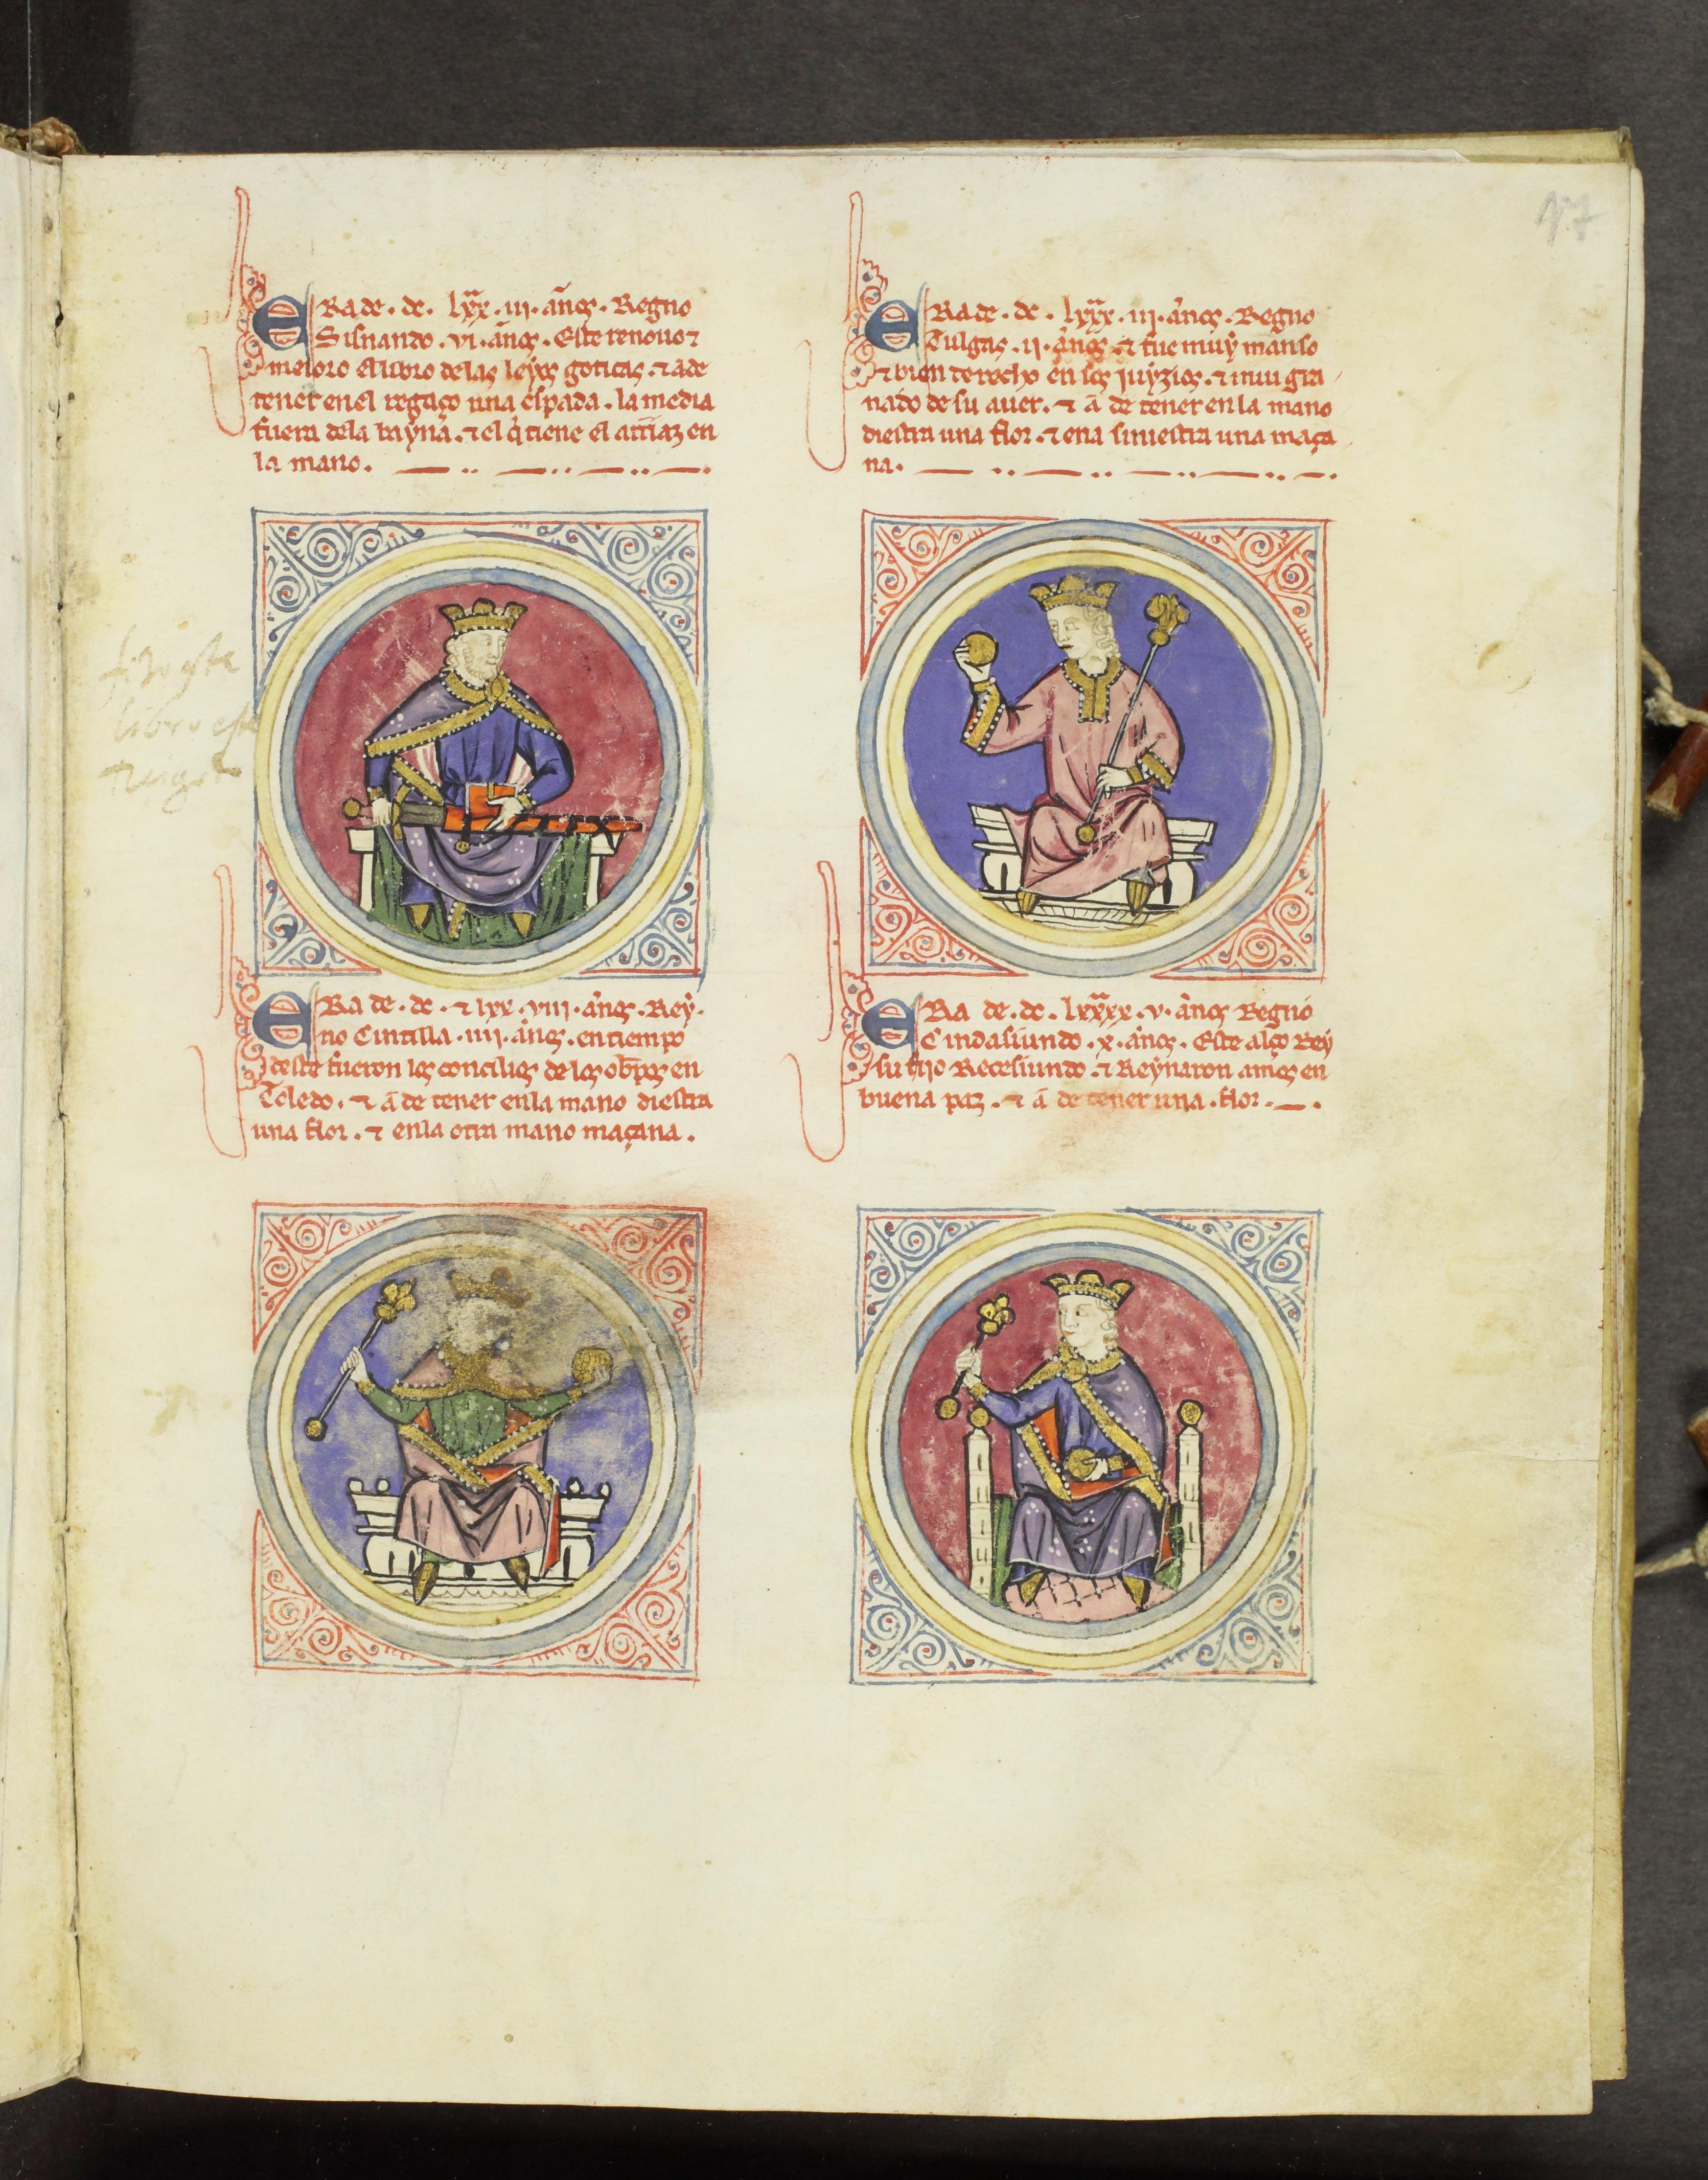 17
ERa de . dc . lxx . iii . años . Regno
Sisnando . vi . años . Este renouo ⁊
meioro el libro delas leyes goticas . ⁊ a de
tener enel regaço una espada . la media
fuera dela vayna . ⁊ el q̇ tiene el arriaz en
la mano .
ERa de . dc . ⁊ lxx . viii . años . Rey
no Cintilla . iiii . años . en tiempo
deste fueron los concilios de los ob̅pos en
Toledo . ⁊ ā de tener enla mano diestra
una flor . ⁊ enla otra mano maçana .
ERa de . dc . lxxx . iii . años . Regno
Tulgas . ii . años . ⁊ fue muy manso
⁊ bien derecho en sos juyzios . ⁊ muu gra
nado de su auer . ⁊ ā de tener en la mano
diestra una flor . ⁊ ena siniestra una maça
na .
ERa de . dc . lxxxx . v . años Regno
Cindasiundo . x . años . Este alço Rey
su fijo Recesiundo . ⁊ Reynaron amos en
buena paz . ⁊ ā de tener una . flor .
libro